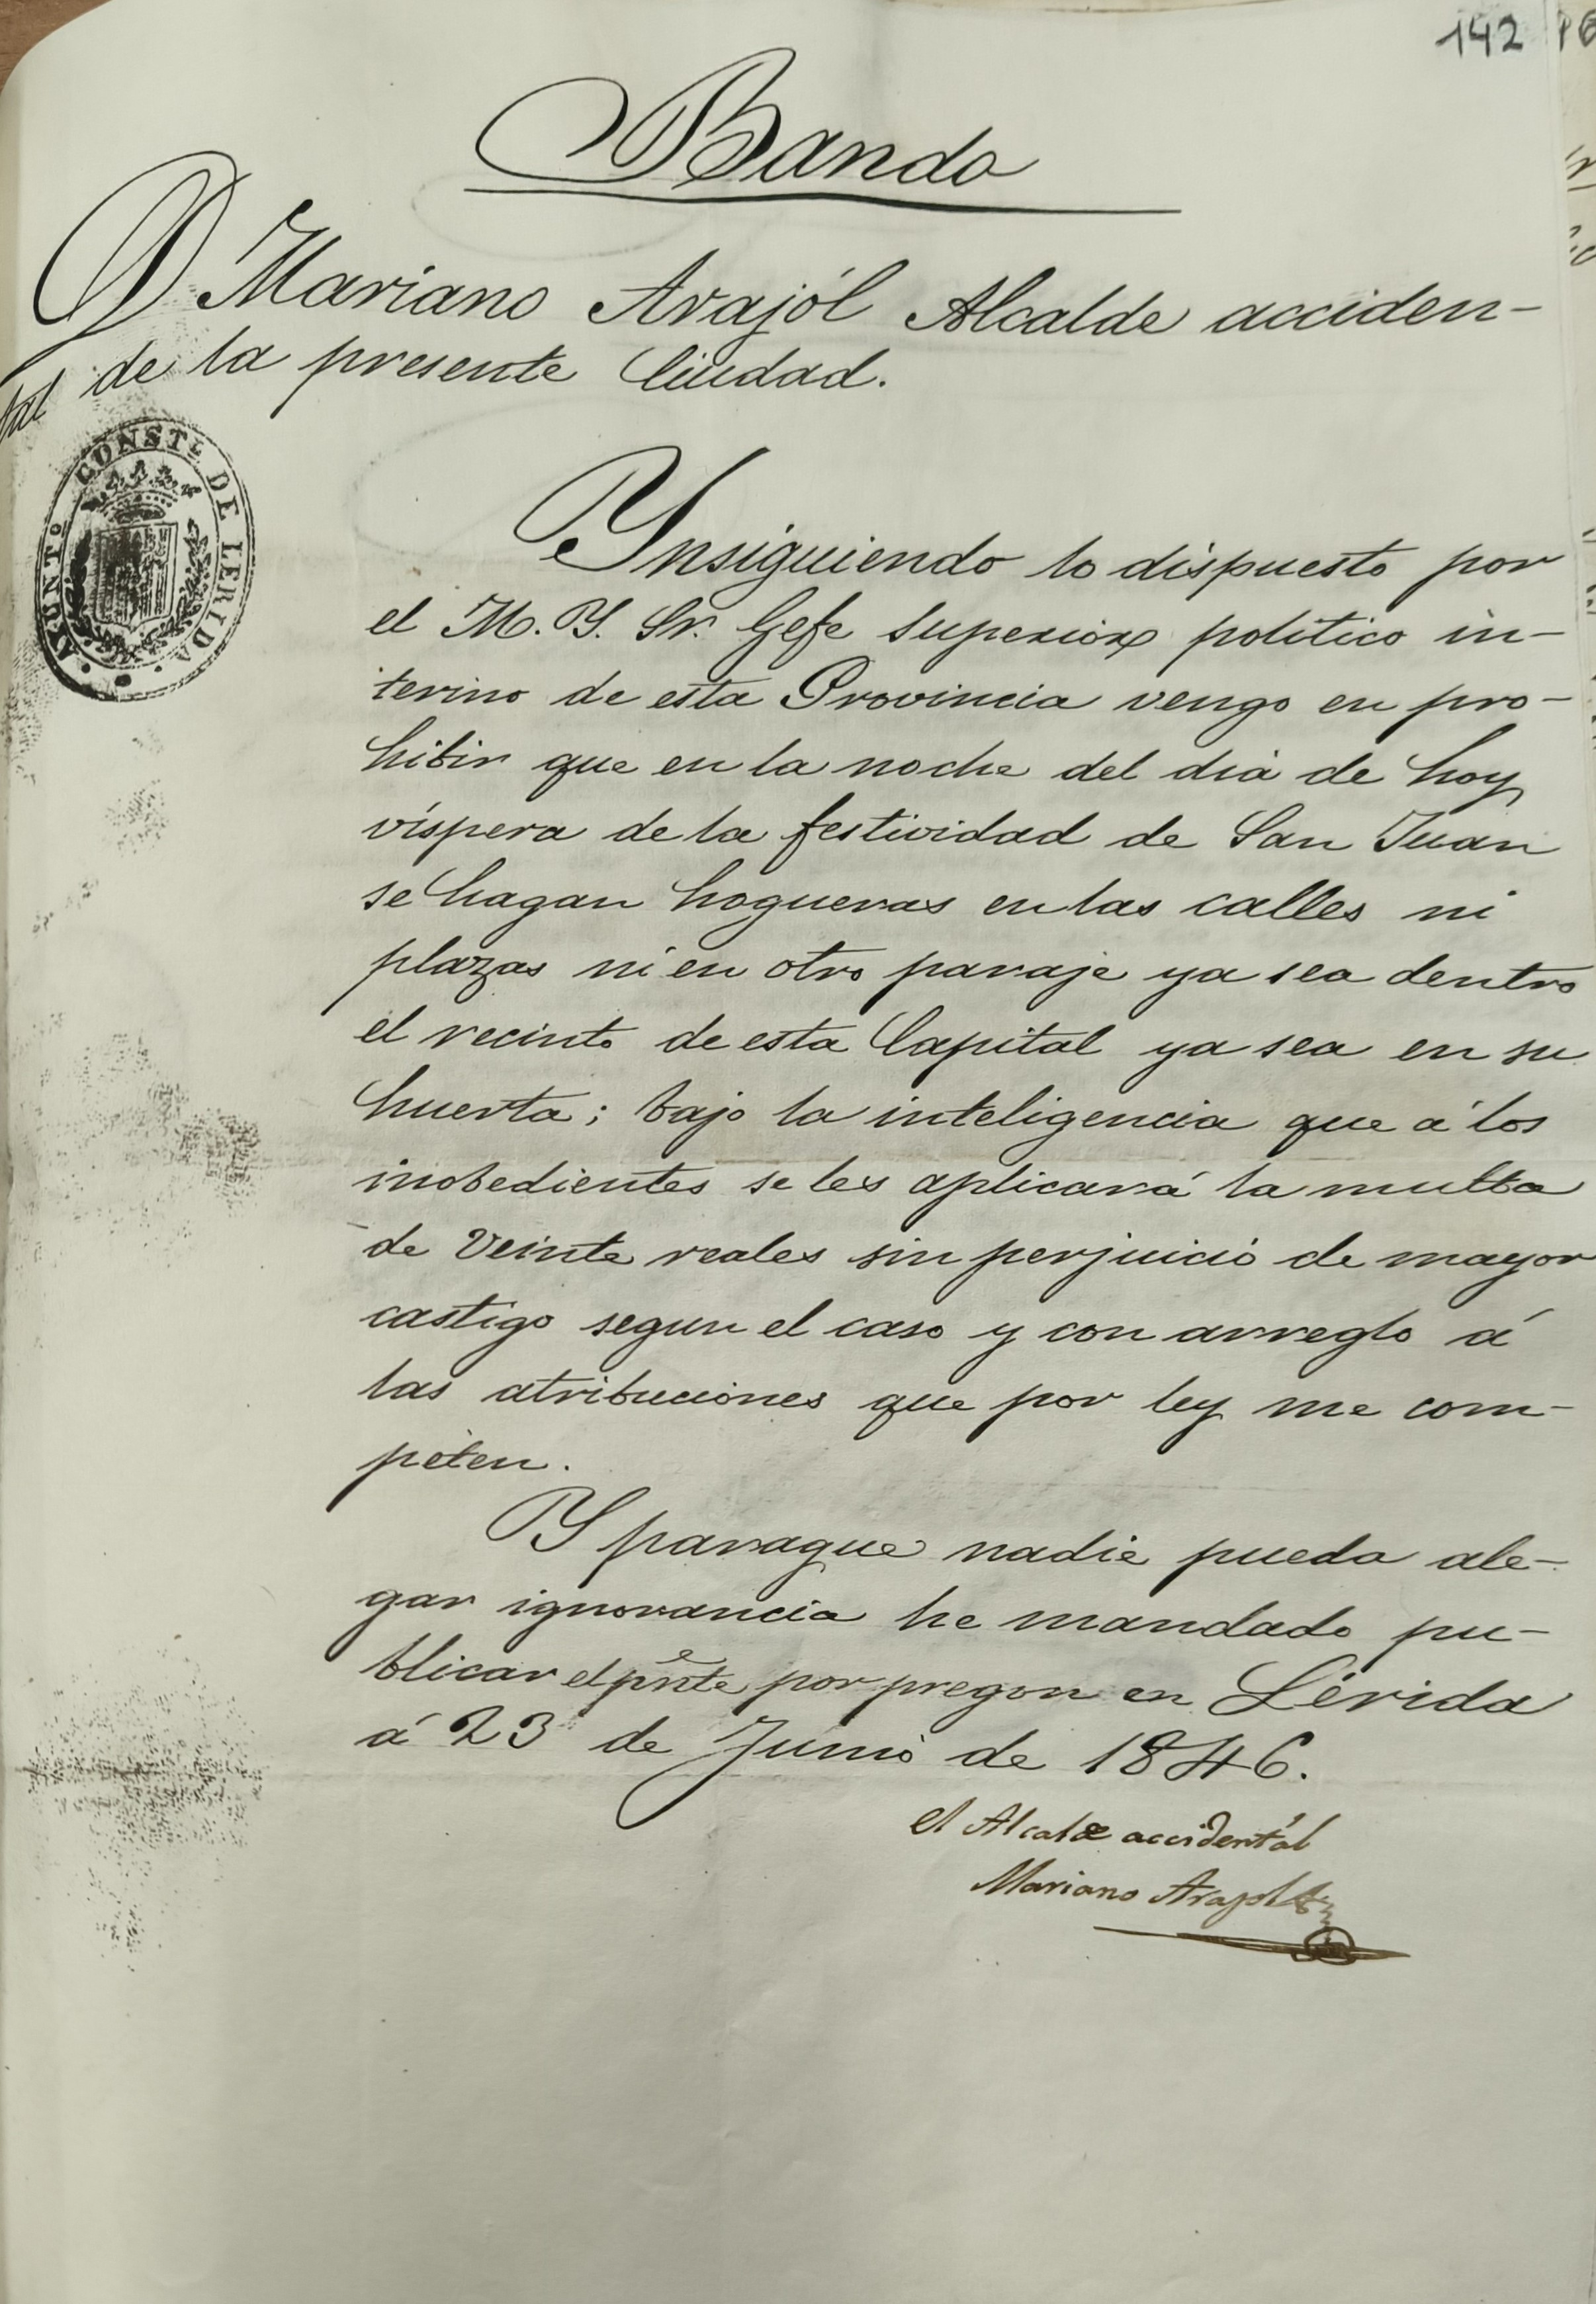 142
Bando
D Mariano Arajól Alcalde acciden-
tal de la presente Ciudad.
AYUNTº CONSTL DE LERIDA
Ynsiguiendo lo dispuesto por
el M. Y. Sr. Gefe superior politico in-
terino de esta Provincia vengo en pro-
hibir que en la noche del dia de hoy
víspera de la festividad de San Juan
se hagan hogueras en las calles ni
plazas ni en otro paraje ya sea dentro
el recinto de esta Capital ya sea en su
huerta; bajo la inteligencia que á los
inobedientes se les aplicará la multa
de Veinte reales sin perjuicio de mayor
castigo segun el caso y con arreglo á
las atribuciones que por ley me com-
peten.
Y paraque nadie pueda ale-
gar ignorancia he mandado pu-
blicar el pnte por pregon en Lérida
á 23 de Junio de 1846.
el Alcalde accidental
Mariano Arajol